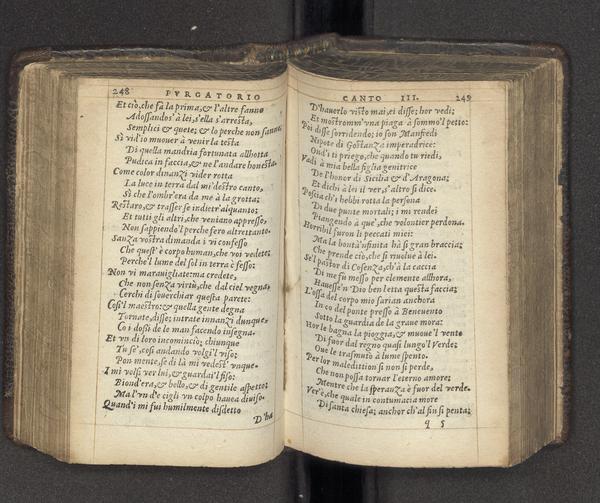 248 PVRGATORIO
Et ciò, che fa la prima, & l'altre fanno
Adossandos' à lei, s'ella s'arresta,
Semplici & quete; & lo perche non sanno;
Sì vid'io muouer à venir la testa
Di quella mandria fortunata allhotta
Pudica in faccia, & ne l'andare honesta.
Come color dinanzi vider rotta
La luce in terra dal mi' destro canto,
Sì che l'ombr'era da me à la grotta;
Restaro, & trasser se indietr'alquanto;
Et tutti gli altri, che veniano appresso,
Non sappiendo'l perche fero altrettanto.
Sanza vostra dimanda i vi confesso
Che quest' è corpo human, che voi vedete;
Perche'l lume del sol in terra è fesso;
Non vi marauigliate: ma credete,
Che non senza virtù, che dal ciel vegna,
Cerchi di souerchiar questa parete:
Cosi'l maestro: & quella gente degna
Tornate, disse; intrate innanzi dunque,
Co i dossi de le man facendo insegna.
Et vn di loro incominciò; chiunque
Tu se', così andando volgi'l viso;
Pon mente, se di là mi vedest' vnque.
I mi volsi ver lui, & guardai'l fiso:
Biond'era, & bello, & di gentile aspetto:
Ma l'vn d'e cigli vn colpo hauea diuiso.
Quand'i mi fui humilmente disdetto
D'ha
CANTO III. 249
D'hauerlo visto mai, ei disse; hor vedi;
Et mostrommi vna piaga à sommo'l petto:
Poi disse sorridendo; io son Manfredi
Nipote di Gostanza imperadrice:
Ond'i ti priego, che quando tu riedi,
Vadi à mia bella figlia genitrice
De l'honor di Sicilia & d'Aragona;
Et dichi à lei il ver, s'altro si dice.
Poscia ch'i hebbi rotta la persona
Di due punte mortali; i mi rendei
Piangendo à que', che volontier perdona.
Horribil furon li peccati miei:
Ma la bontà'nfinita hà sì gran braccia;
Che prende ciò, che si riuolue à lei.
Se'l pastor di Cosenza, ch'à la caccia
Di me fu messo per clemente allhora,
Hauesse'n Dio ben letta questa faccia;
L'ossa del corpo mio sarian anchora
In co del ponte presso à Beneuento
Sotto la guardia de la graue mora:
Hor le bagna la pioggia, & muoue'l vento
Di fuor dal regno quasi lungo'l Verde;
Oue le trasmutò à lume spento.
Per lor maledittion sì non si perde,
Che non possa tornar l'eterno amore;
Mentre che la speranza è fuor del verde.
Ver'è, che quale in contumacia more
Di santa chiesa; anchor ch'al fin si penta;
q 5